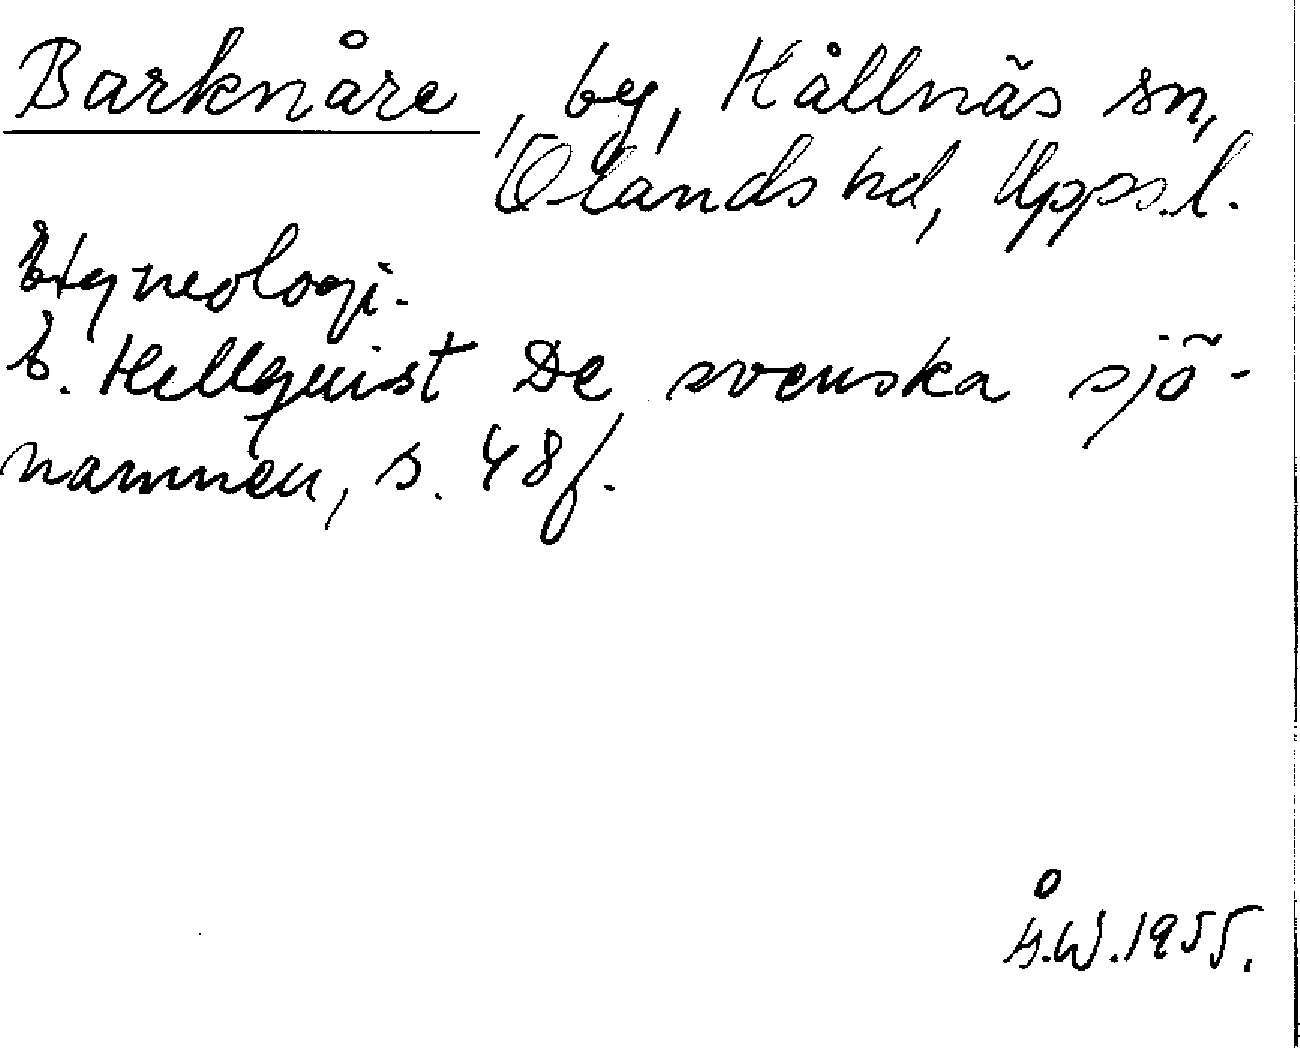 Barknåre, by, Hållnäs sn,
Olands hd, Upps.l.
Etymologi.
E. Hellquist De svenska sjö-
namnen, s. 48f.
Å.W.1955.